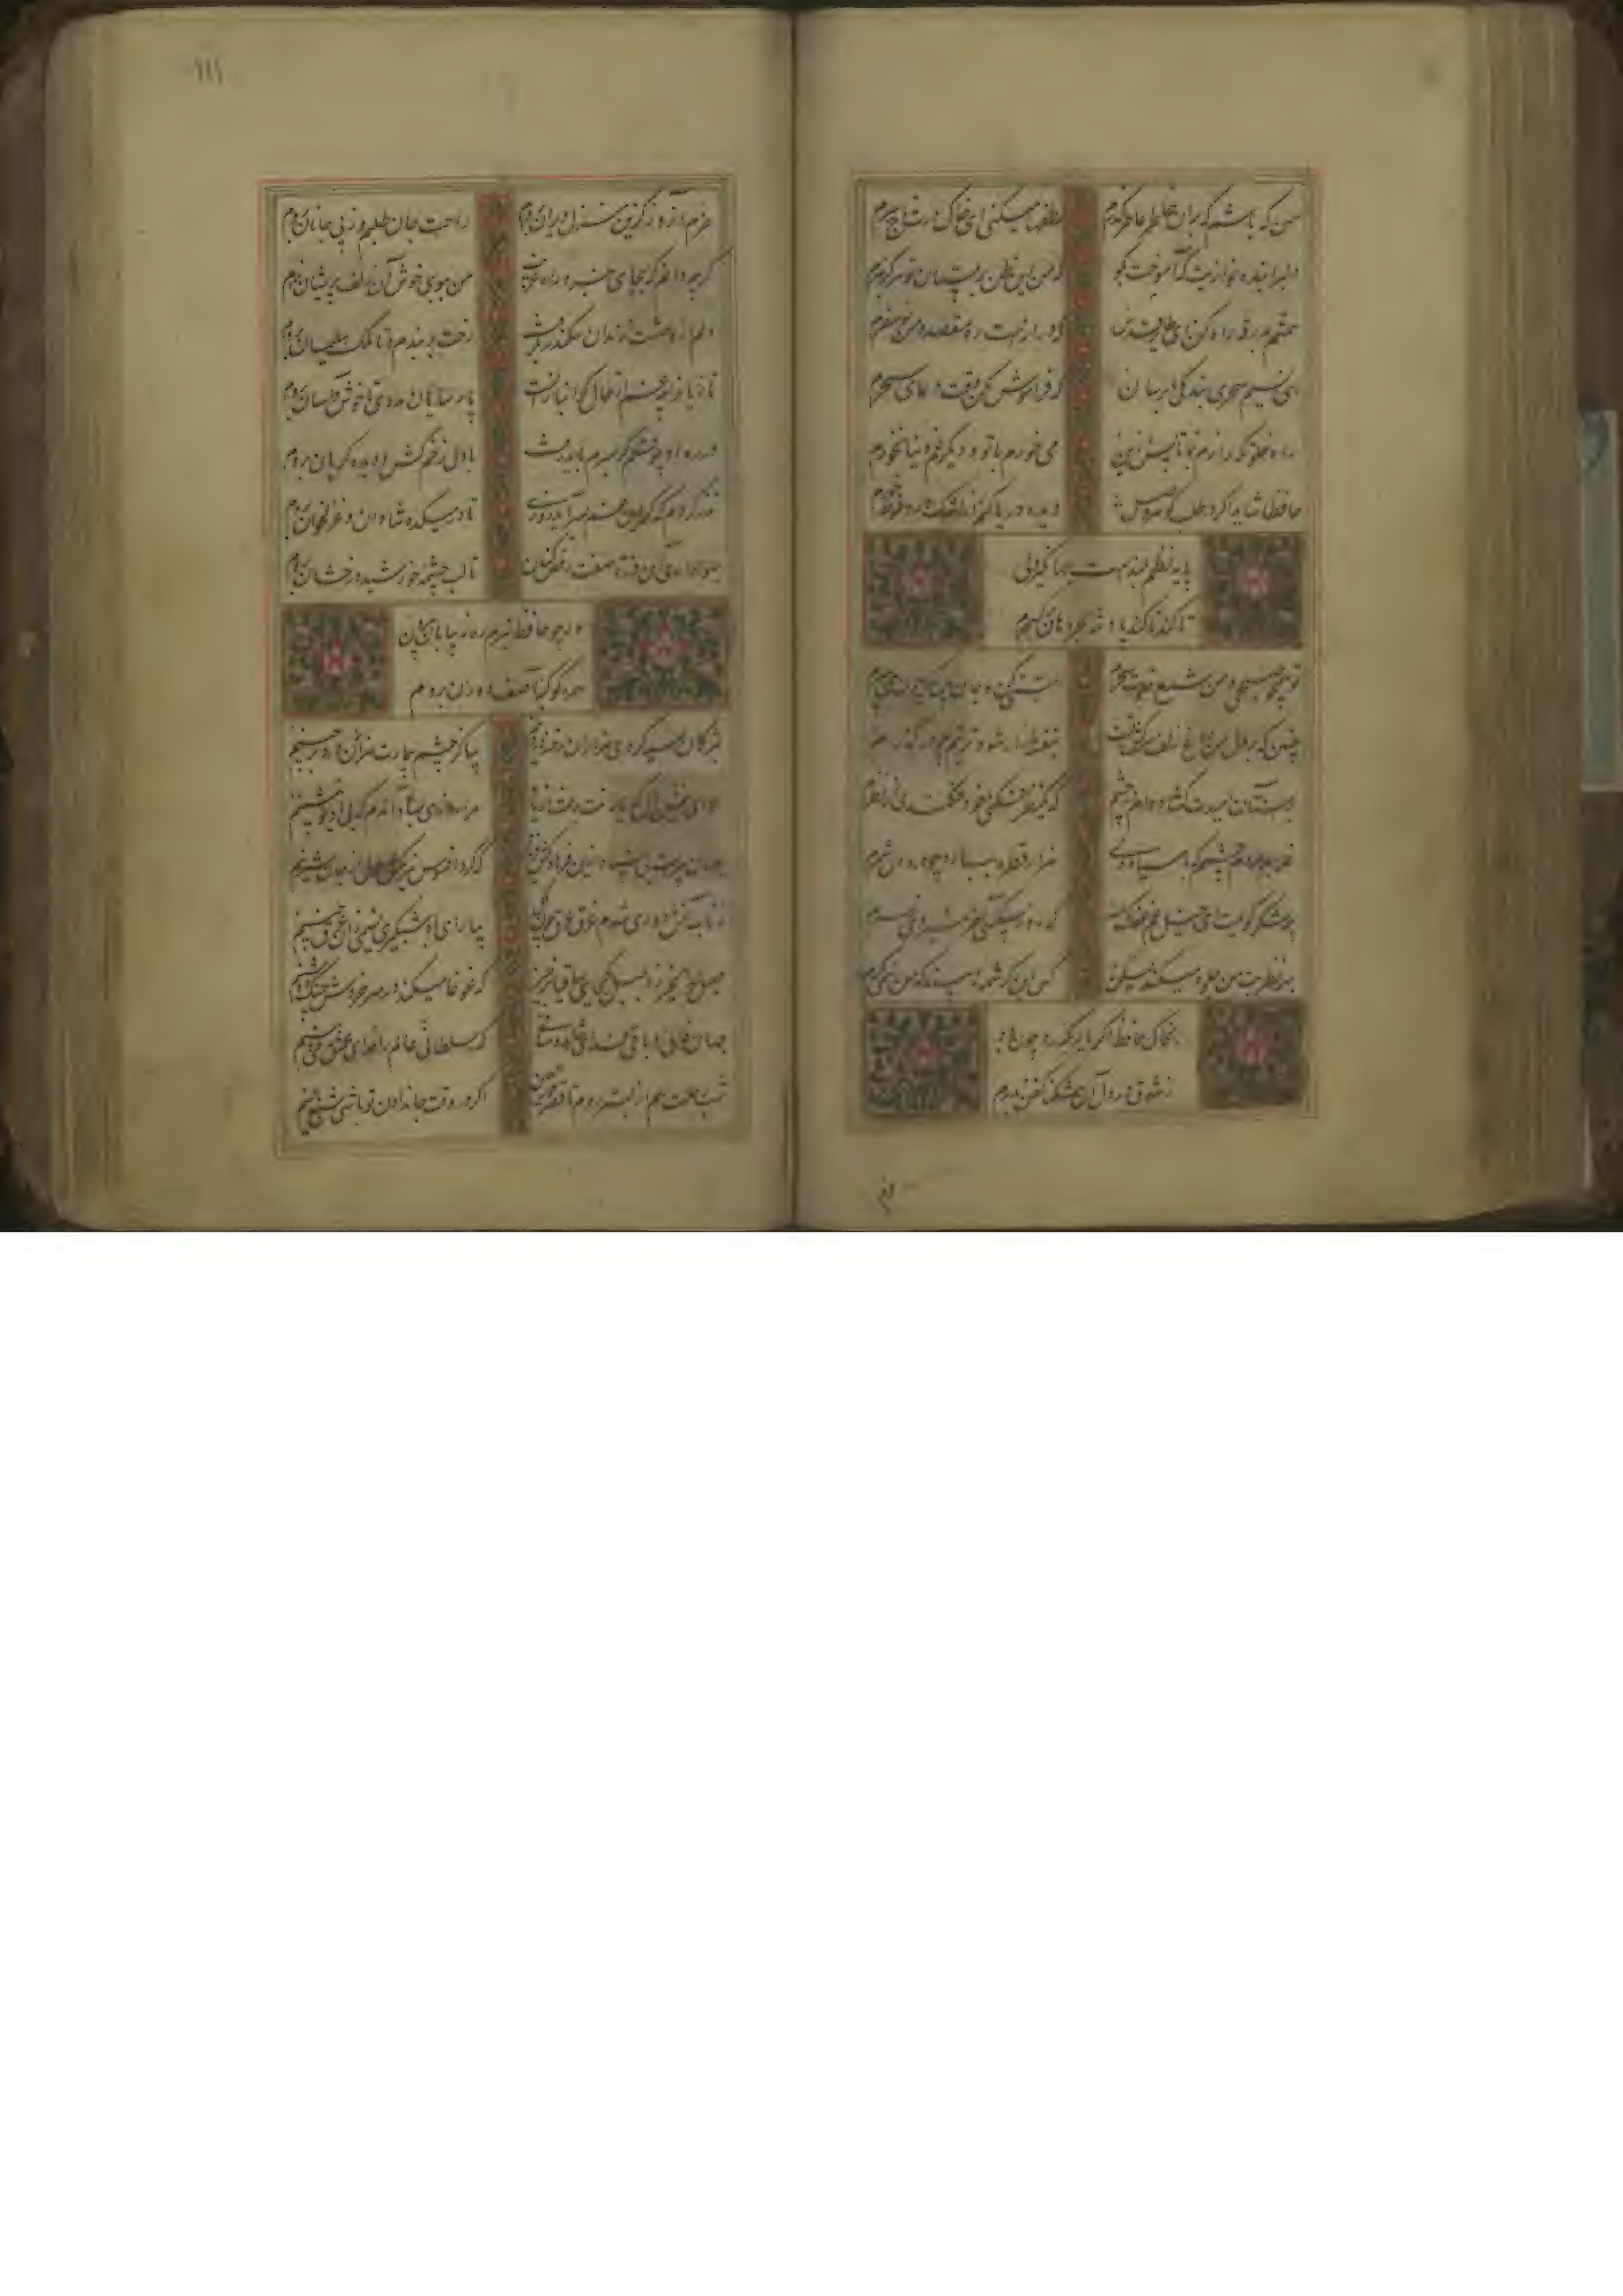 من که باشم که بران خاطر عاطر گذرم لطفها میکنی ای خاک درت تاج سرم
دلبرا بنده نوازیت که آموخت بگو که من این ظن برقیبان تو هرگز نبرم
همتم بدرقه راه کن ای طایر قدس که درازست ره مقصد و من نوسفرم
ای نسیم سحری بندگی ما برسان که فراموش مکن وقت دعای سحرم
راه خلوتگه بنما تا پس ازین می خورم با تو و دیگر غم دنیا نخورم
حافظا شاید اگر در طلب گوهر وصل دیده دریا کنم از اشک و درو غوطه خورم
پایه نظم بلندست و جهانگیر
تا کند پادشه بحر دهان پر گهرم
تو همچو صبحی و من شمع خلوت سحرم تبسمی کن و جان بین که چون همی سپرم
چنین که در دل من داغ زلف سرکش تست بنفشه زار شود تربتم چو درگذرم
بر آستان امیدت گشاده ام در چشم که یک نظر فکنی خود فکندی از نظرم
غلام مردم چشمم که با سیاه دلی هزار قطره ببارد چو درد دل شمرم
چه شکر گویمت ای خیل غم عفاک الله که روز بیکسی آخر نمیروی ز سرم
بهر نظر بت من جلوه میکند لیکن کس این کرشمه نبیند که من همی نگرم
بخاک حافظ اگر یار بگذرد چون باد
ز شوق در دل آن تنگنا کفن بدرم
۱۱۱
خرم آن روز کزین منزل ویران بروم راحت جان طلبم وز پی جانان بروم
گرچه دانم که بجایی نبرد راه غریب من ببوی خوش آن زلف پریشان بروم
دلم از وحشت زندان سکندر بگرفت رخت بربندم و تا ملک سلیمان بروم
تازیانرا چو غم حال گرانباران نیست پارسایان مددی تا خوش و آسان بروم
در ره او چو قلم گر بسرم باید رفت با دل زخم کش و دیده گریان بروم
نذر کردم که گر این غم بسر آید روزی تا در میکده شادان و غزلخوان بروم
بهواداری آن ذره صفت رقص کنان تا لب چشمه خورشید درخشان بروم
ور چو حافظ نبرم ره ز بیابان بیرون
همره کوکبه آصف دوران بروم
بمژگان سیه کردی هزاران رخنه در دینم بیا کز چشم بیمارت هزاران درد برچینم
الا ای همنشین دل که یارانت برفت از یاد مرا روزی مباد آن دم که بی یاد تو بنشینم
جهان پیرست و بی بنیاد ازین فرهاد کش فریاد که کرد ملول از جان شیرینم
ز تاب آتش دوری شدم غرق عرق چون گل بیار ای باد شبگیری نسیمی زان عرق چینم
صباح الخیر زد بلبل کجایی ساقیا برخیز که غوغا میکند در سر خروش چنگ دوشینم
جهان فانی و باقی فدای شاهد و ساقی که سلطانی عالم را عشق می بینم
شب رحلت هم از بستر روم تا قصر حورالعین اگر در وقت جان دادن تو باشی شمع بالینم